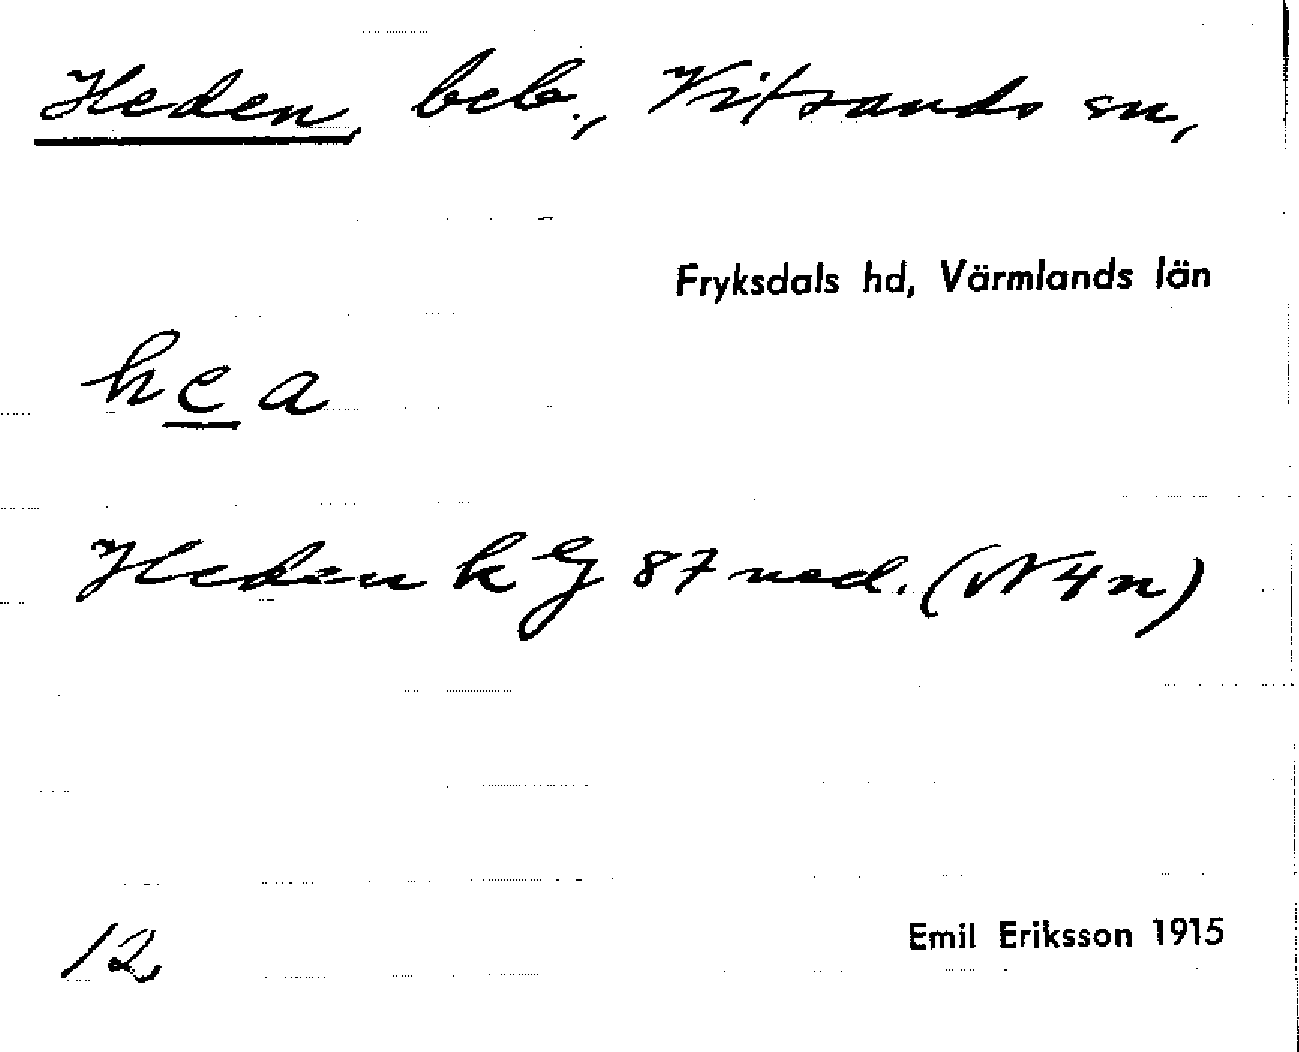 Heden, beb., Vitsands sn,
Fryksdals hd, Värmlands län
hea
Heden k G 87 ned. (N 4 n)
12
Emil Eriksson 1915